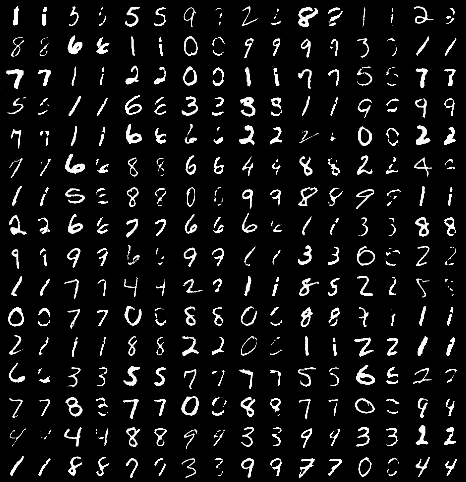 1 1 5 5 5 5 9 9 2 2 8 8 1 1 2 2
8 8 6 6 1 1 0 0 9 9 9 9 3 3 1 1
7 7 1 1 2 2 0 0 1 1 7 7 5 5 7 7
5 5 1 1 6 6 3 3 3 3 1 1 9 9 9 9
7 7 1 1 6 6 6 6 2 2 2 0 0 2 2
7 7 6 6 8 8 6 6 4 4 8 8 2 2 4
1 1 5 5 8 8 0 0 9 9 8 8 9 9 1 1
2 2 6 6 7 7 6 6 6 6 1 1 3 3 8 8
9 9 9 9 6 6 9 9 1 1 3 3 0 0 2 2
1 1 7 7 4 4 2 2 1 1 8 5 2 2
0 0 7 7 0 0 8 8 0 0 8 8 1 1
2 1 1 8 8 2 2 0 0 1 1 2 2 1 1
6 6 3 3 5 5 7 7 7 7 5 5 6 6 2 2
7 7 8 8 7 7 0 0 8 8 7 7 0 0 9 9
4 4 4 4 8 8 9 9 3 3 9 9 3 3 2 2
1 1 8 8 7 7 3 3 9 9 7 7 0 0 4 4